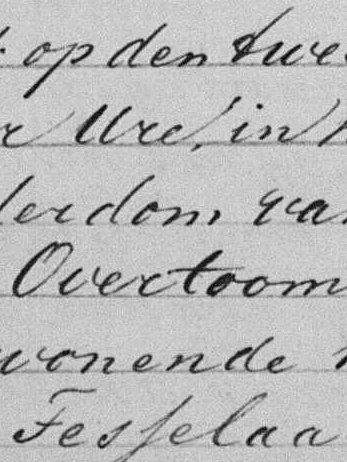 op den twe
r Ure, in
derdom van
Overtoom
wonende
Fesselaa